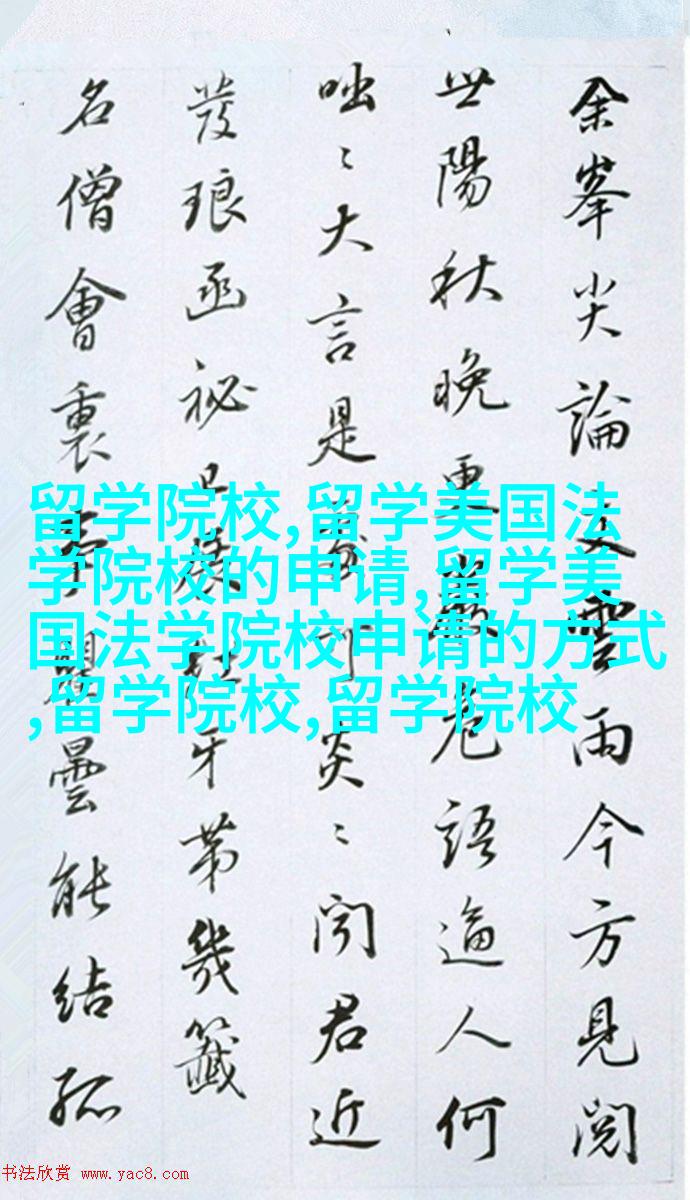 余峯尖論文雲雨今方見閱
世陽秋晚更嚴危語逼人何
咄〻大言是炎〻聞君近
發琅函祕牙第幾籤
名僧會裏曇能結孤
留学院校,留学美国法
学院校的申请,留学美
国法学院校申请的方式
,留学院校,留学院校
书法欣赏 www.yac8.com